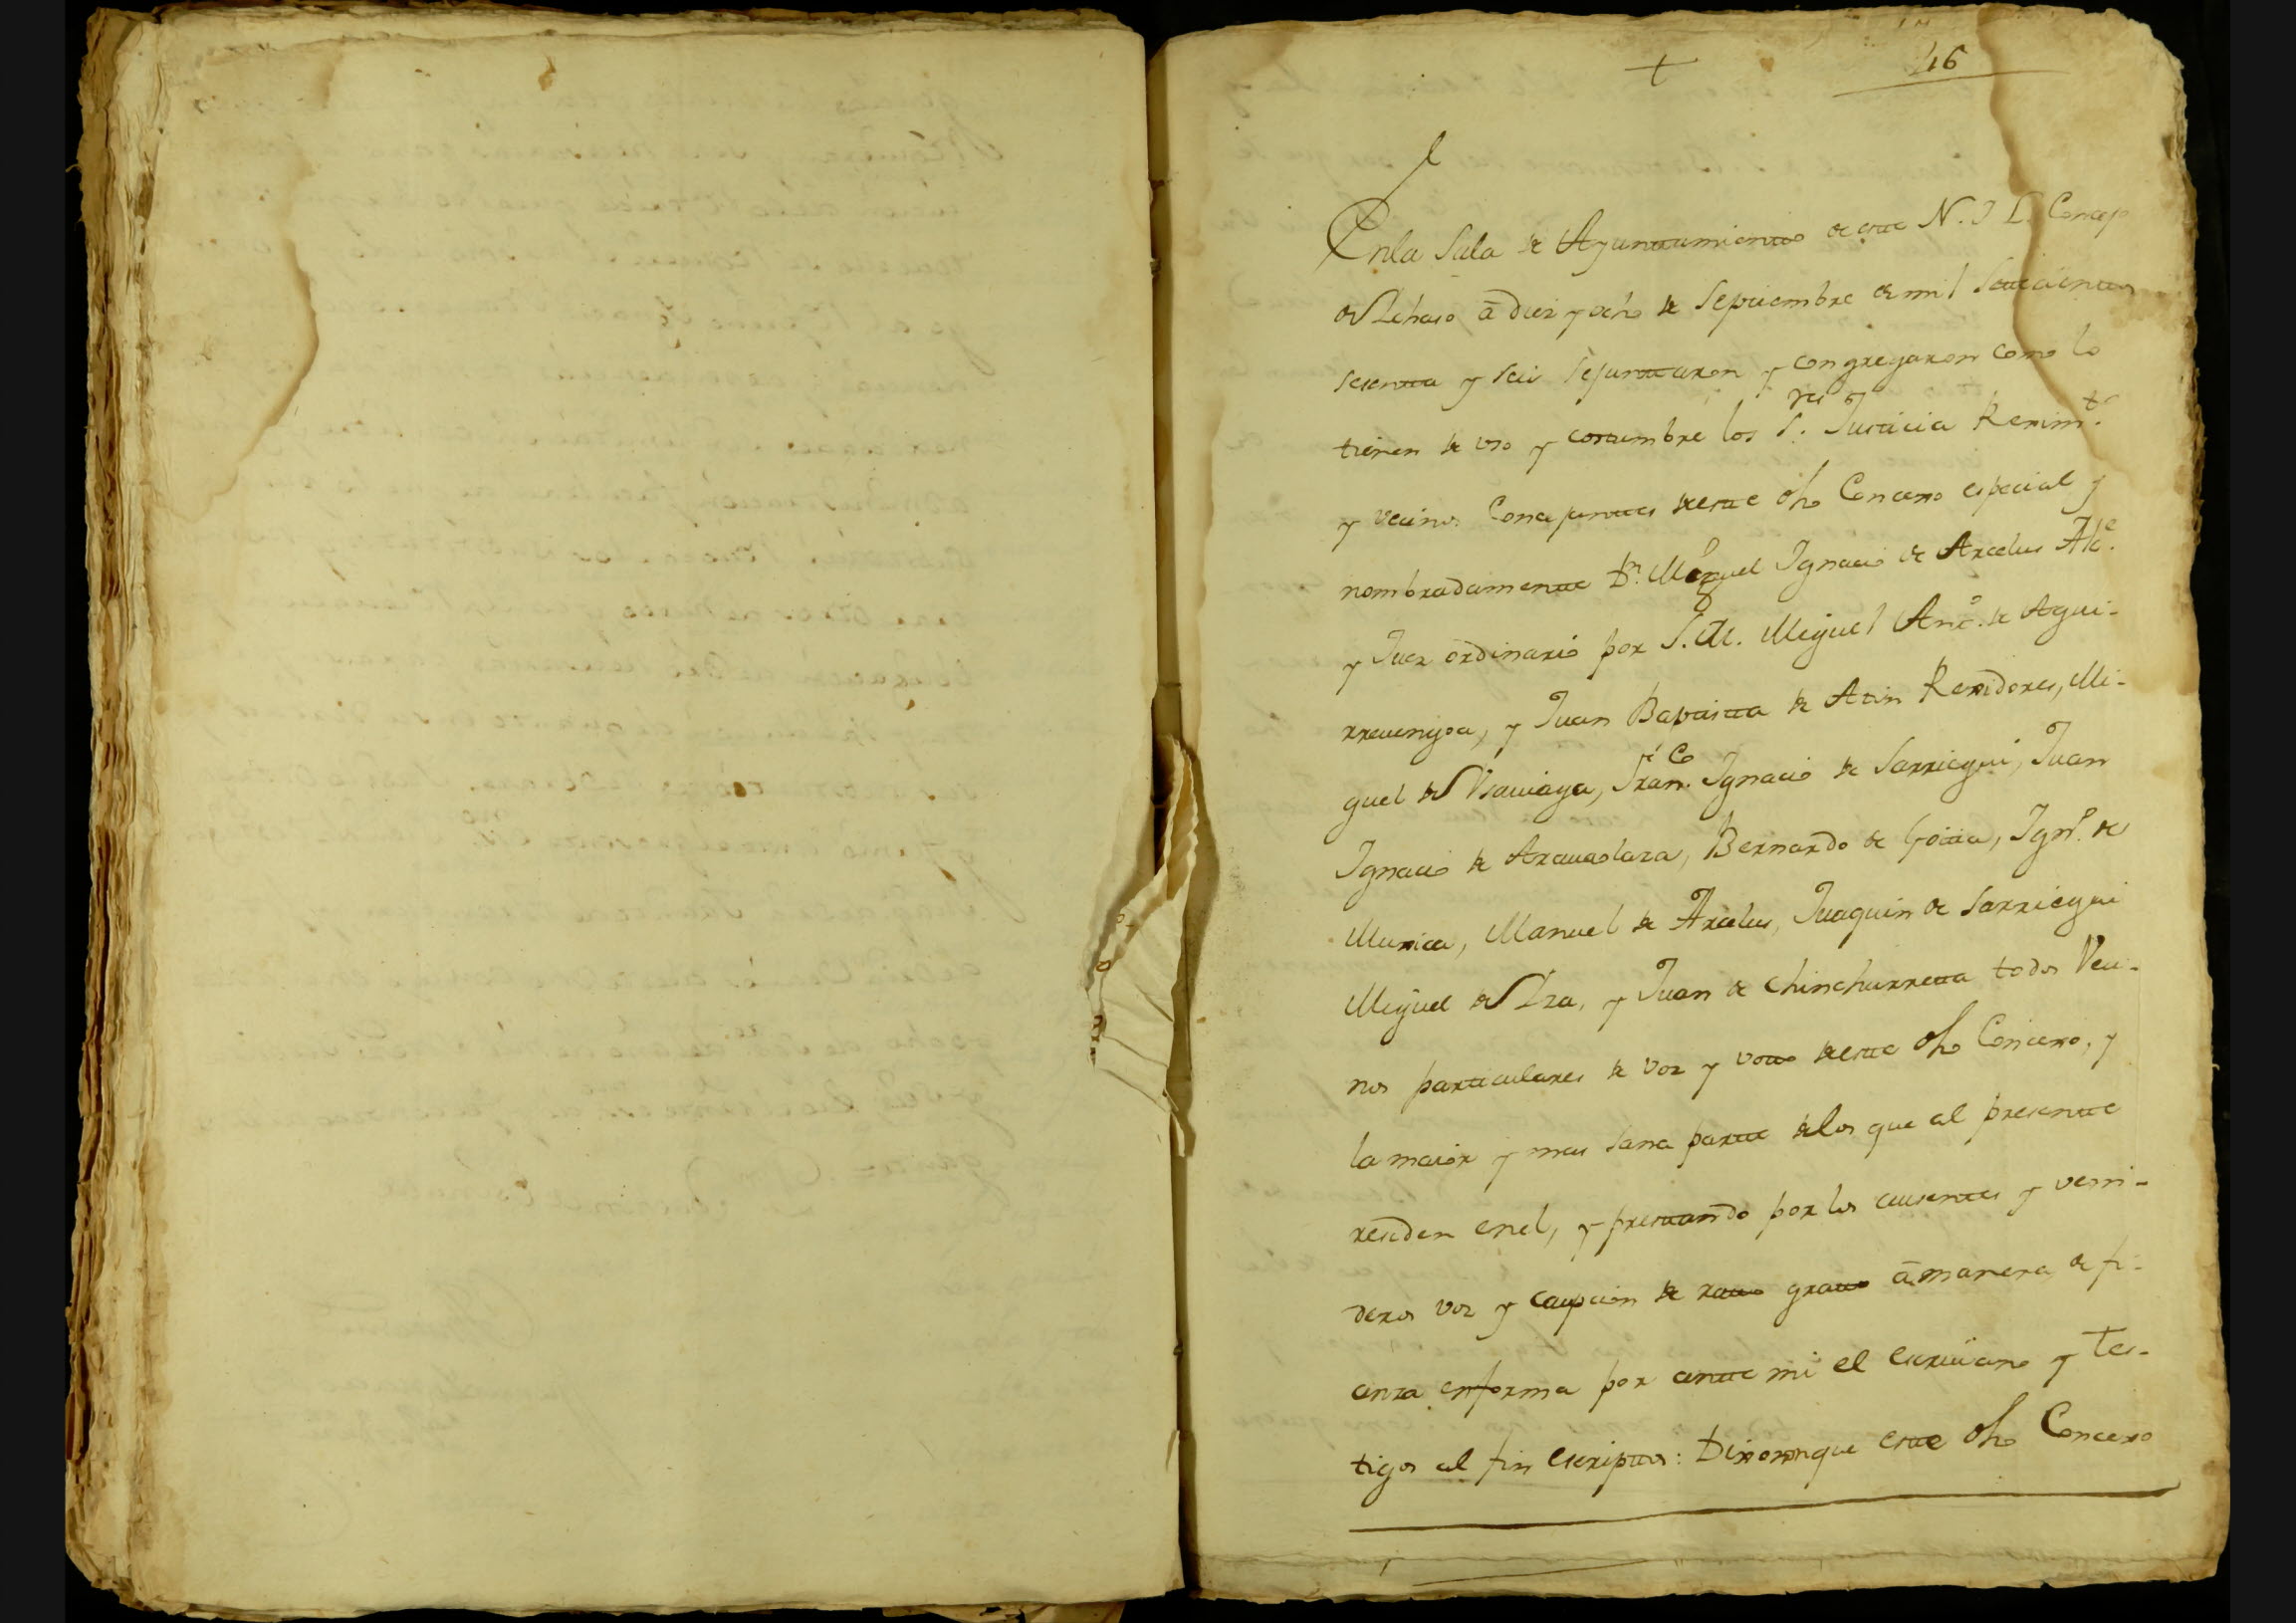 +
116
En la Sala de Ayuntamiento de este N. I L. Concejo
de Lazcano a diez y ocho de Septiembre de mil Setecientos
sesenta y seis se juntaron y congregaron como lo
tienen de uso y costumbre los S.res Justicia Reximto.
y vecinos Concejantes de este dho Concexo especial y
nombradamente Dn. Miguel Ignacio de Arcelus Alce.
y Juez ordinario por S. M. Miguel Anto. de Agui-
rrevengoa, y Juan Baptista de Atin Rexidores, Mi-
guel de Usauiaga, Franco. Ignacio de Sarriegui, Juan
Ignacio de Arauaolaza, Bernardo de Goitia, Igno. de
Munica, Manuel de Arcelus, Juaquin de Sarriegui
Miguel de Iza, y Juan de Chinchurreta todos Veci-
nos particulares de voz y voto de este dho Concexo, y
la maior y mas sana parte de los que al presente
residen en el, y prestando por los ausentes y veni-
deros voz y caupcion de rato grato a manera de fi-
anza en forma por ante mi el escriuano y tes-
tigos al fin escriptos: Dixeron que este dho Concexo